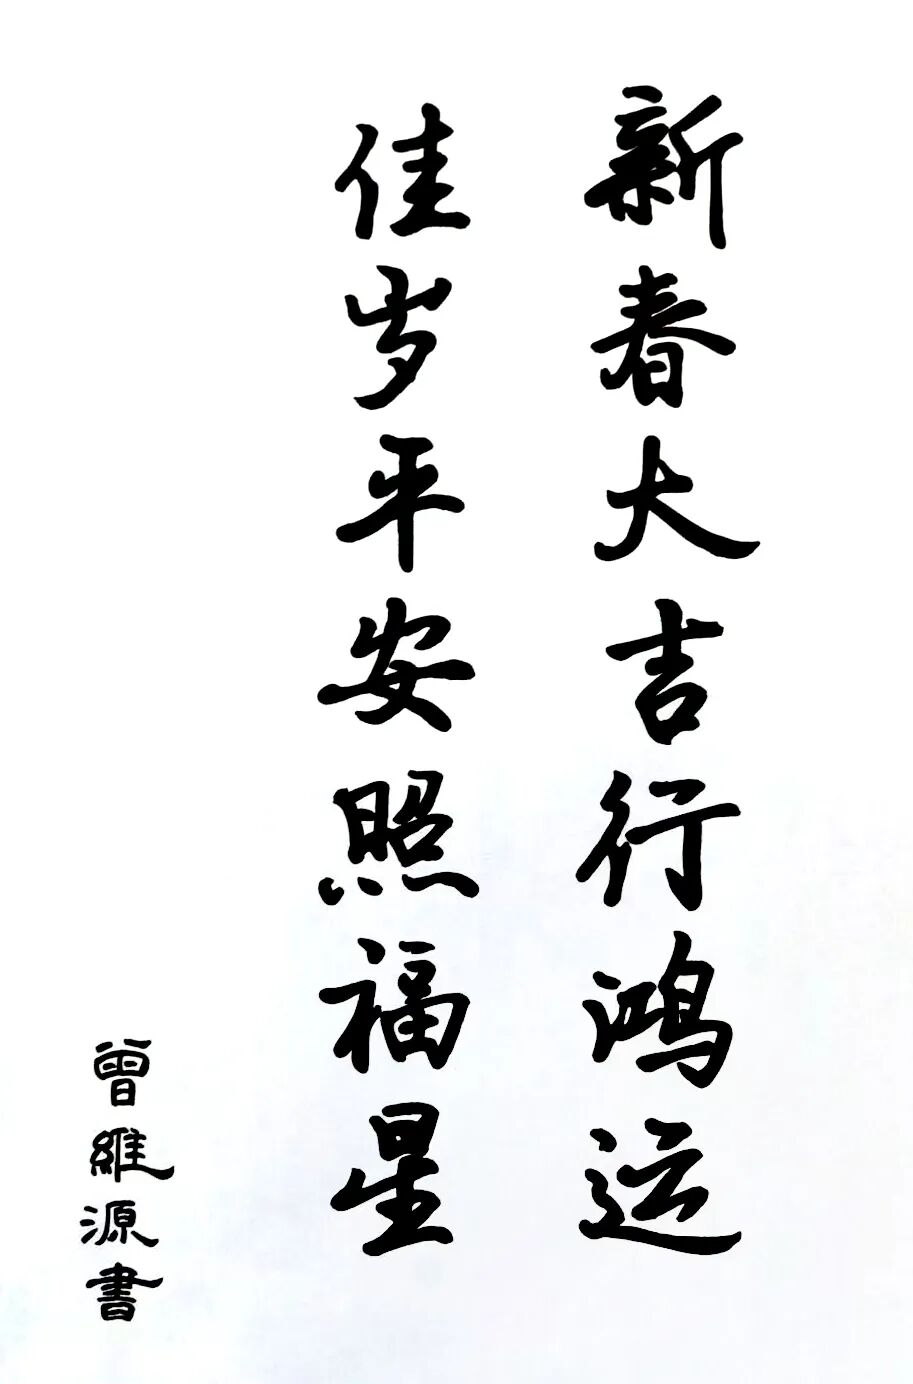 新春大吉行鸿运
佳岁平安照福星
曾維源書